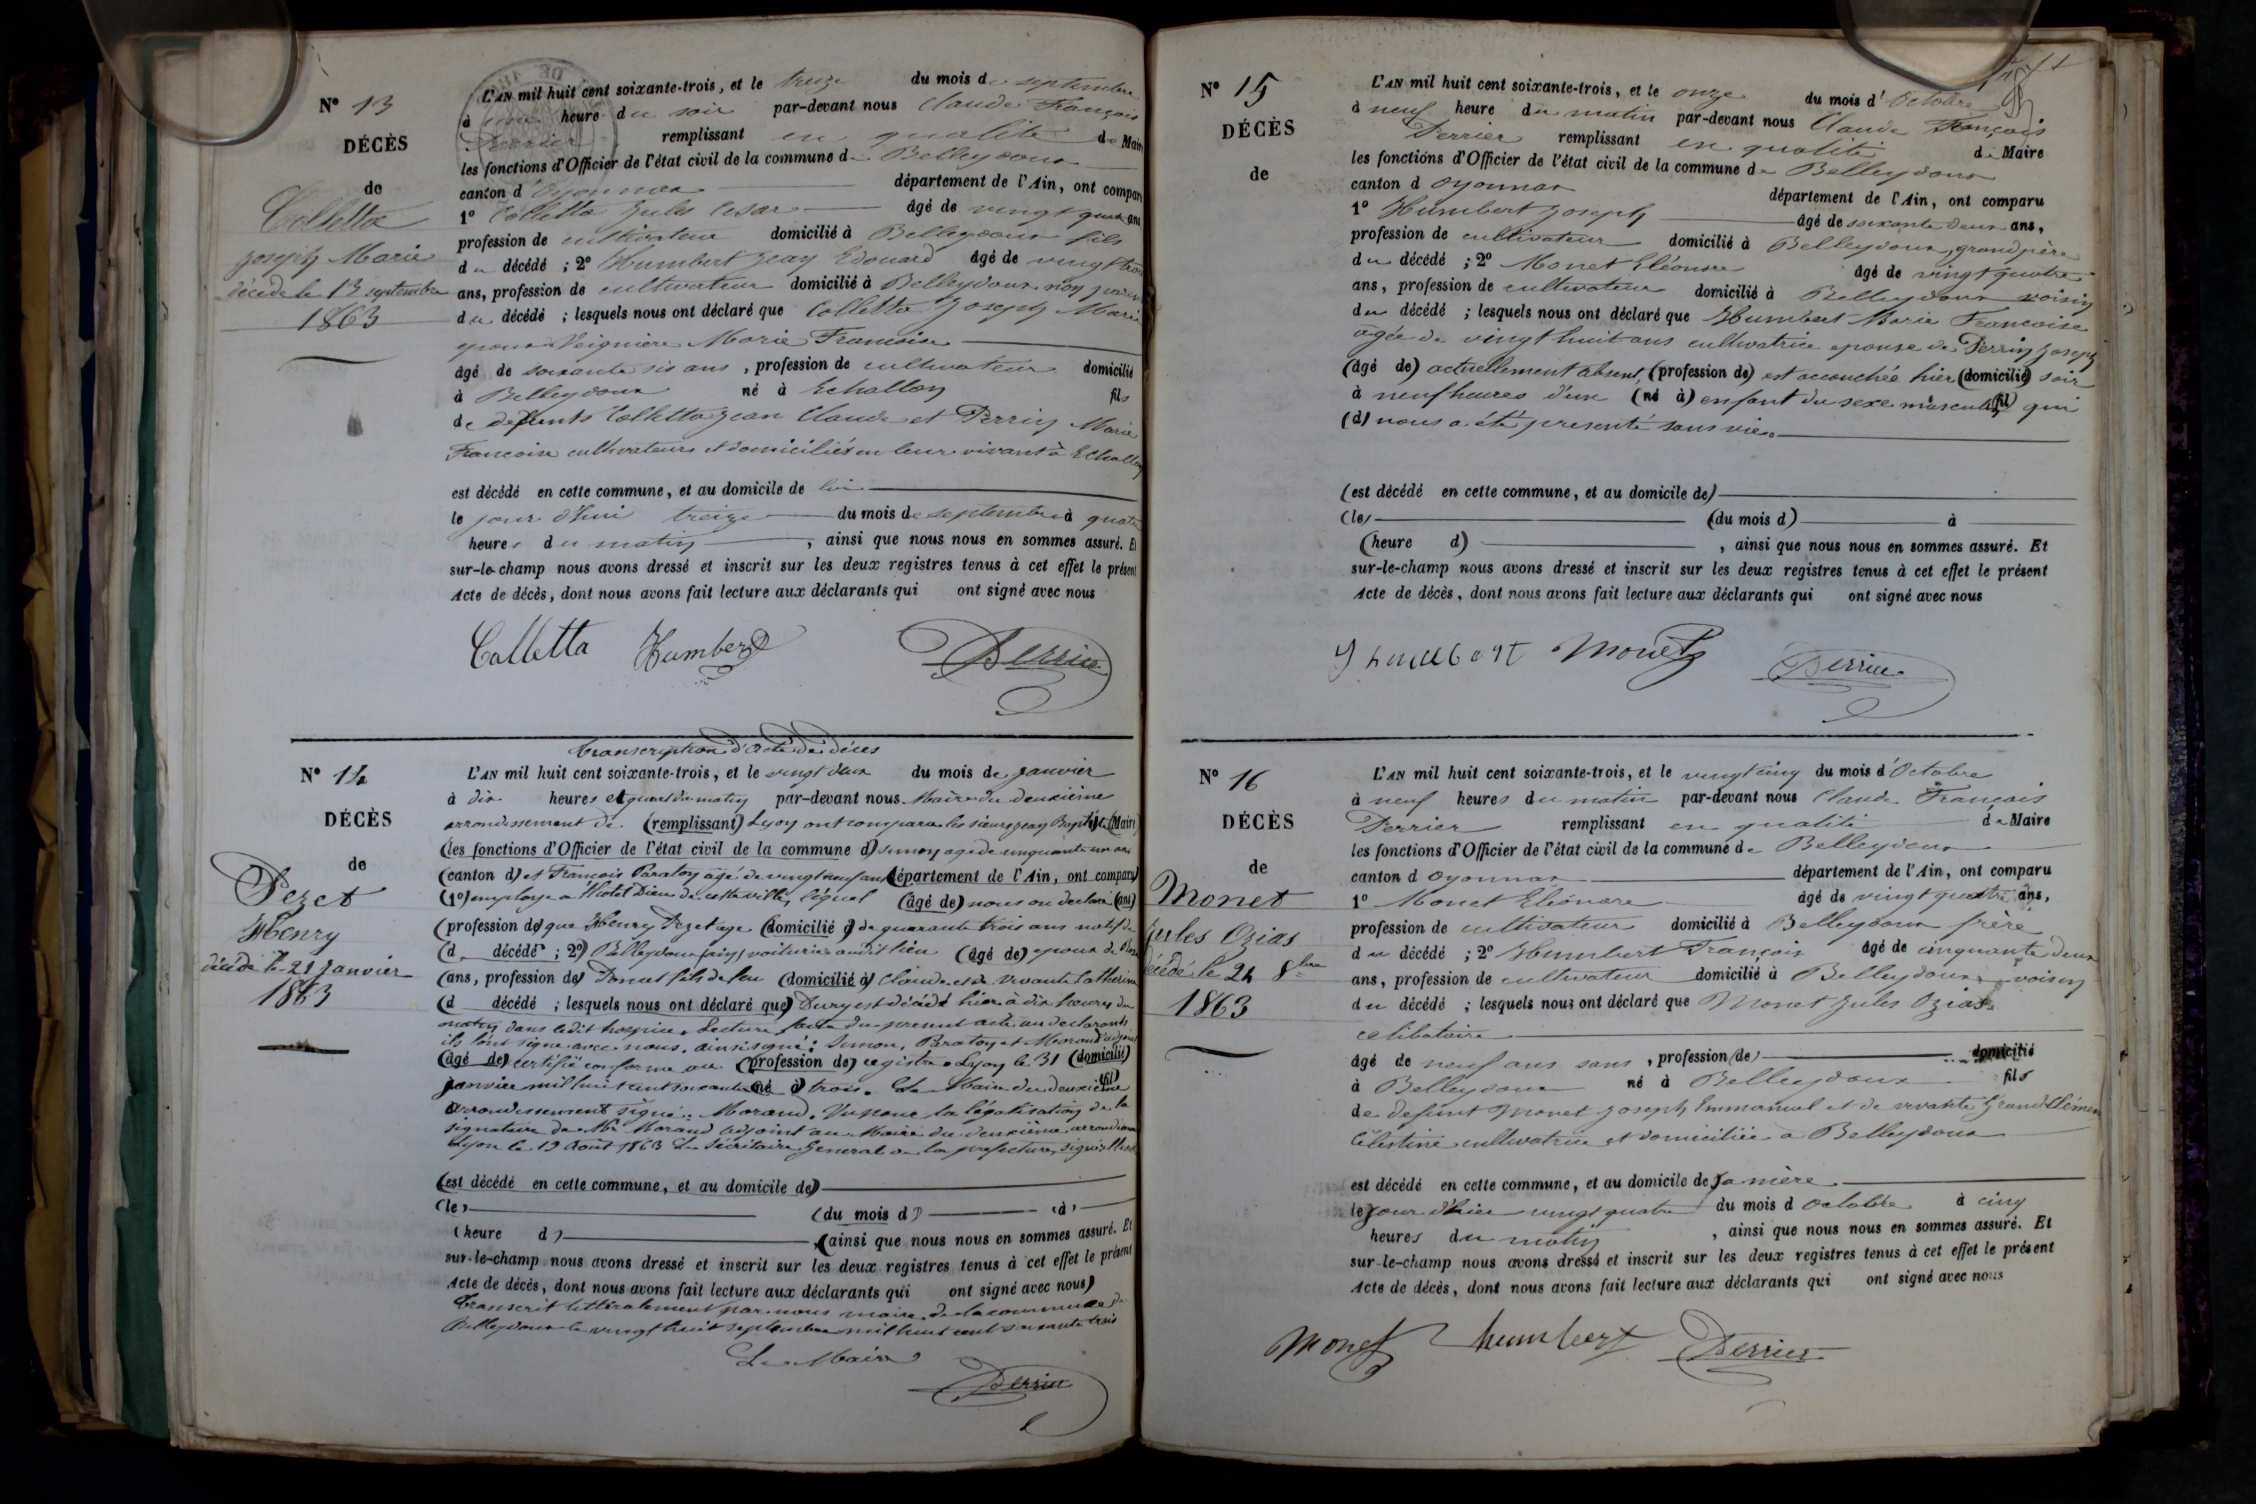 N° 13
DÉCÈS
de
Colletta
Joseph Marie
décédé le 13 septembre
1863
L'AN mil huit cent soixante-trois, et le treize du mois de septembre
à une heure du soir par-devant nous Claude François
Perrier remplissant en qualité de Maire
les fonctions d'Officier de l'état civil de la commune de Belleydoux
canton d'Oyonnax département de l'Ain, ont comparu
1° Colletta Jules Cesar âgé de vingt quatre ans
profession de cultivateur domicilié à Belleydoux fils
du décédé ; 2° Humbert Jean Edouard âgé de vingt trois
ans, profession de cultivateur domicilié à Belleydoux non parent
du décédé ; lesquels nous ont déclaré que Colletta Joseph Marie
epoux Veignière Marie Francoise
âgé de soixante six ans, profession de cultivateur domicilié
à Belleydoux né à Echallon fils
de defunts Colletta Jean Claude et Perrin Marie
Francoise cultivateurs et domiciliés en leur vivant à Echallon
est décédé en cette commune, et au domicile de lui
le jour d'hui treize du mois de septembre à quatre
heures du matin, ainsi que nous nous en sommes assuré. Et
sur-le-champ nous avons dressé et inscrit sur les deux registres tenus à cet effet le présent
Acte de décès, dont nous avons fait lecture aux déclarants qui ont signé avec nous
Colletta Humbert Perrier
N° 14
DÉCÈS
de
Pezet
Henry
décédé le 21 Janvier
1863
transcription d'acte de décès
L'AN mil huit cent soixante-trois, et le vingt deux du mois de janvier
à dix heures et quart du matin par-devant nous Maire du deuxième
arrondissement de (remplissant) Lyon ont comparu les sieurs Jean Baptiste (Maire)
(les fonctions d'Officier de l'état civil de la commune d) Simon agé de cinquante un ans
(canton d) et François Paraton agé de vingt neuf ans (département de l'Ain, ont comparu)
(1°) employe à l'Hotel Dieu de cette ville, lequel (âgé de) nous on declaré (ans)
(profession de) que Henry Pezet age (domicilié à) de quarante trois ans natif de
(d décédé ; 2°) Belleydoux (ain) voiturier audit lieu (âgé de) epoux de
(ans, profession de) fils de feu (domicilié à) Claude et de vivante Catherine
(d décédé ; lesquels nous ont déclaré que) Dury est décédé hier à dix heures du
matin dans ledit hospice. Lecture faite du present acte au declarants
ils l'ont signé avec nous. ainsi signé : Simon, Paraton et Morand adjoint
(âgé de) certifié conforme au (profession de) registre Lyon le 31 (domicilié)
janvier mil huit cent soixante (né à) trois. Le Maire du deuxième (fil)
arrondissement signé : Morand. Vu pour la légalisation de la
signature de Mr Morand adjoint au Maire du deuxième arrondissement
Lyon le 19 Août 1863 Le Sécrétaire General de la prefecture, signé
(est décédé en cette commune, et au domicile de)
(le) (du mois d) (à)
(heure d) , (ainsi que nous nous en sommes assuré. Et
sur-le-champ nous avons dressé et inscrit sur les deux registres tenus à cet effet le présent
Acte de décès, dont nous avons fait lecture aux déclarants qui ont signé avec nous)
Transcrit littéralement par nous maire de la commune de
Belleydoux le vingt huit septembre mil huit cent soixante trois
Le Maire
Perrier
N° 15
DÉCÈS
de
L'AN mil huit cent soixante-trois, et le onze du mois d'Octobre
à neuf heure du matin par-devant nous Claude François
Perrier remplissant en qualité de Maire
les fonctions d'Officier de l'état civil de la commune de Belleydoux
canton d Oyonnax département de l'Ain, ont comparu
1° Humbert Joseph âgé de soixante deux ans,
profession de cultivateur domicilié à Belleydoux, grand père
du décédé ; 2° Monet Eléonore âgé de vingt quatre
ans, profession de cultivateur domicilié à Belleydoux voisin
du décédé ; lesquels nous ont déclaré que Humbert Marie Francoise
agée de vingt huit ans cultivatrice epouse de Perrin Joseph
(âgé de) actuellement absent, (profession de) est accouchée hier (domicilié) soir
à neuf heures d'un (né à) enfant du sexe masculin (fil) qui
(d) nous a été presenté sans vie.
(est décédé en cette commune, et au domicile de)
(le) (du mois d) à
(heure d) , ainsi que nous nous en sommes assuré. Et
sur-le-champ nous avons dressé et inscrit sur les deux registres tenus à cet effet le présent
Acte de décès, dont nous avons fait lecture aux déclarants qui ont signé avec nous
Humbert Monet Perrier
N° 16
DÉCÈS
de
Monet
Jules Ozias
décédé le 24 8bre
1863
L'AN mil huit cent soixante-trois, et le vingt cinq du mois d'Octobre
à neuf heures du matin par-devant nous Claude François
Perrier remplissant en qualité de Maire
les fonctions d'Officier de l'état civil de la commune de Belleydoux
canton d Oyonnax département de l'Ain, ont comparu
1° Monet Eléonore âgé de vingt quatre ans,
profession de cultivateur domicilié à Belleydoux frère
du décédé ; 2° Humbert François âgé de cinquante deux
ans, profession de cultivateur domicilié à Belleydoux voisin
du décédé ; lesquels nous ont déclaré que Monet Jules Ozias
celibataire
âgé de neuf ans sans, profession (de) domicilié
à Belleydoux né à Belleydoux fils
de defunt Monet Joseph Emmanuel et de vivante Grandclément
Célestine cultivatrice et domiciliée à Belleydoux
est décédé en cette commune, et au domicile de sa mère
le jour d'hier vingt quatre du mois d octobre à cinq
heures du matin, ainsi que nous nous en sommes assuré. Et
sur-le-champ nous avons dressé et inscrit sur les deux registres tenus à cet effet le présent
Acte de décès, dont nous avons fait lecture aux déclarants qui ont signé avec nous
Monet humbert Perrier